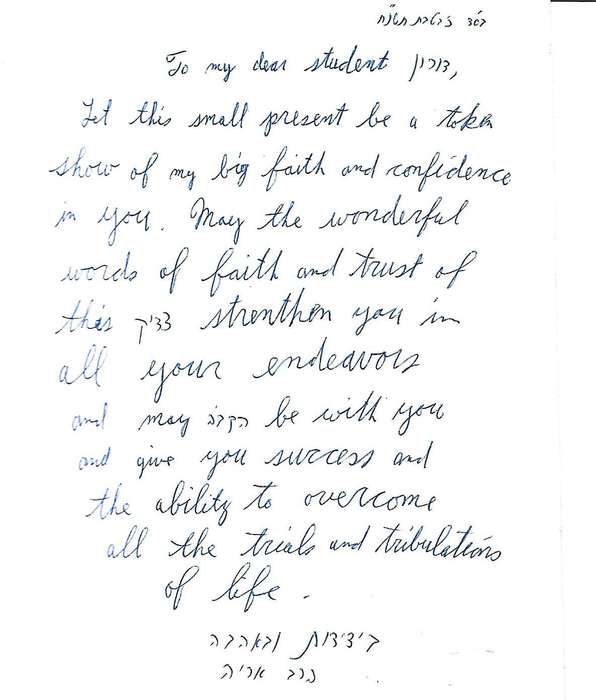 בס"ד ז' בטבת תשנ"ח
To my dear student דורון,
Let this small present be a token
show of my big faith and confidence
in you. May the wonderful
words of faith and trust of
this צדיק strenthen you in
all your endeavors
and may הקב"ה be with you
and give you success and
the ability to overcome
all the trials and tribulations
of life.
בידידות ובאהבה
הרב אריה